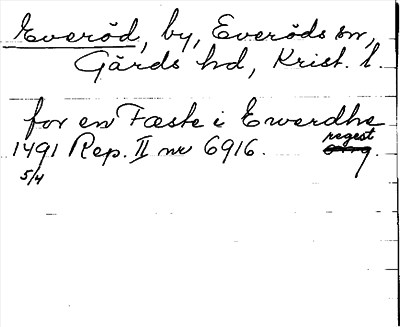 Everöd, by, Everöds sn,
Gärds hd, Krist. l.
for en Fæste i Ewerdhe
1491 Rep. II nr 6916. regest
5/4